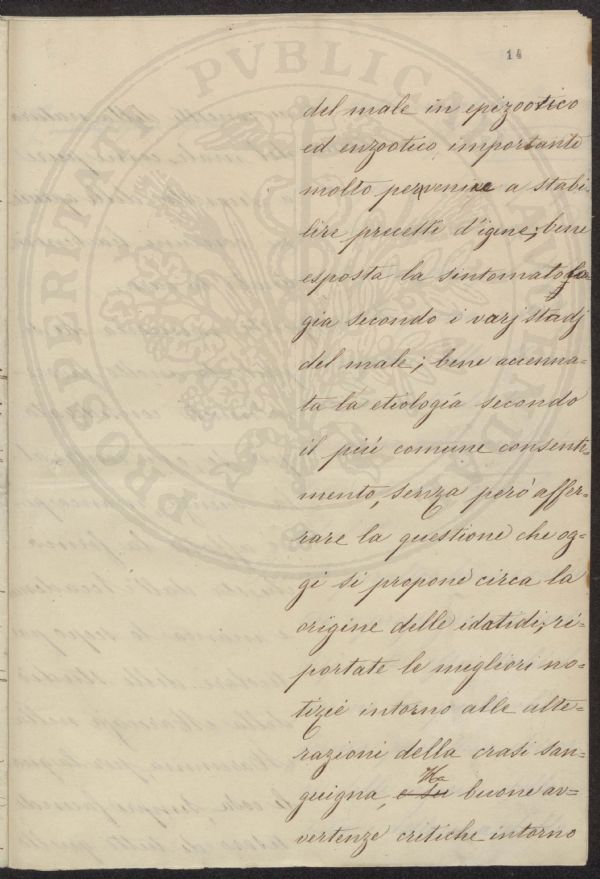 14
del male in epizootico
ed enzootico, importanti
molto pervenire a stabi-
lire precetti d'igiene; bene
esposta la sintomatolo-
gia secondo i varj stadj
del male; bene accenna-
ta la etiologia secondo
il più comune consenti-
mento, senza però affer-
rare la questione che og-
gi si propone circa la
origine delle idatidi; ri-
portate le migliori no-
tizie intorno alle alte-
razioni della crasi san-
guigna, Ha buone av-
vertenze critiche intorno
PROSPERITATI PVBLICAE